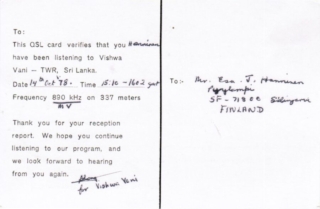 To:
This QSL card verifies that you
have been listening to Vishwa
Vani – TWR, Sri Lanka.
Date 14th Oct '78. Time 1510-1602 gmt
Frequency 890 kHz on 337 meters
Thank you for your reception
report. We hope you continue
listening to our program, and
we look forward to hearing
from you again.
for Vishwa Vani
To:- Mr. Esa. J. Hanninen
SF-
FINLAND